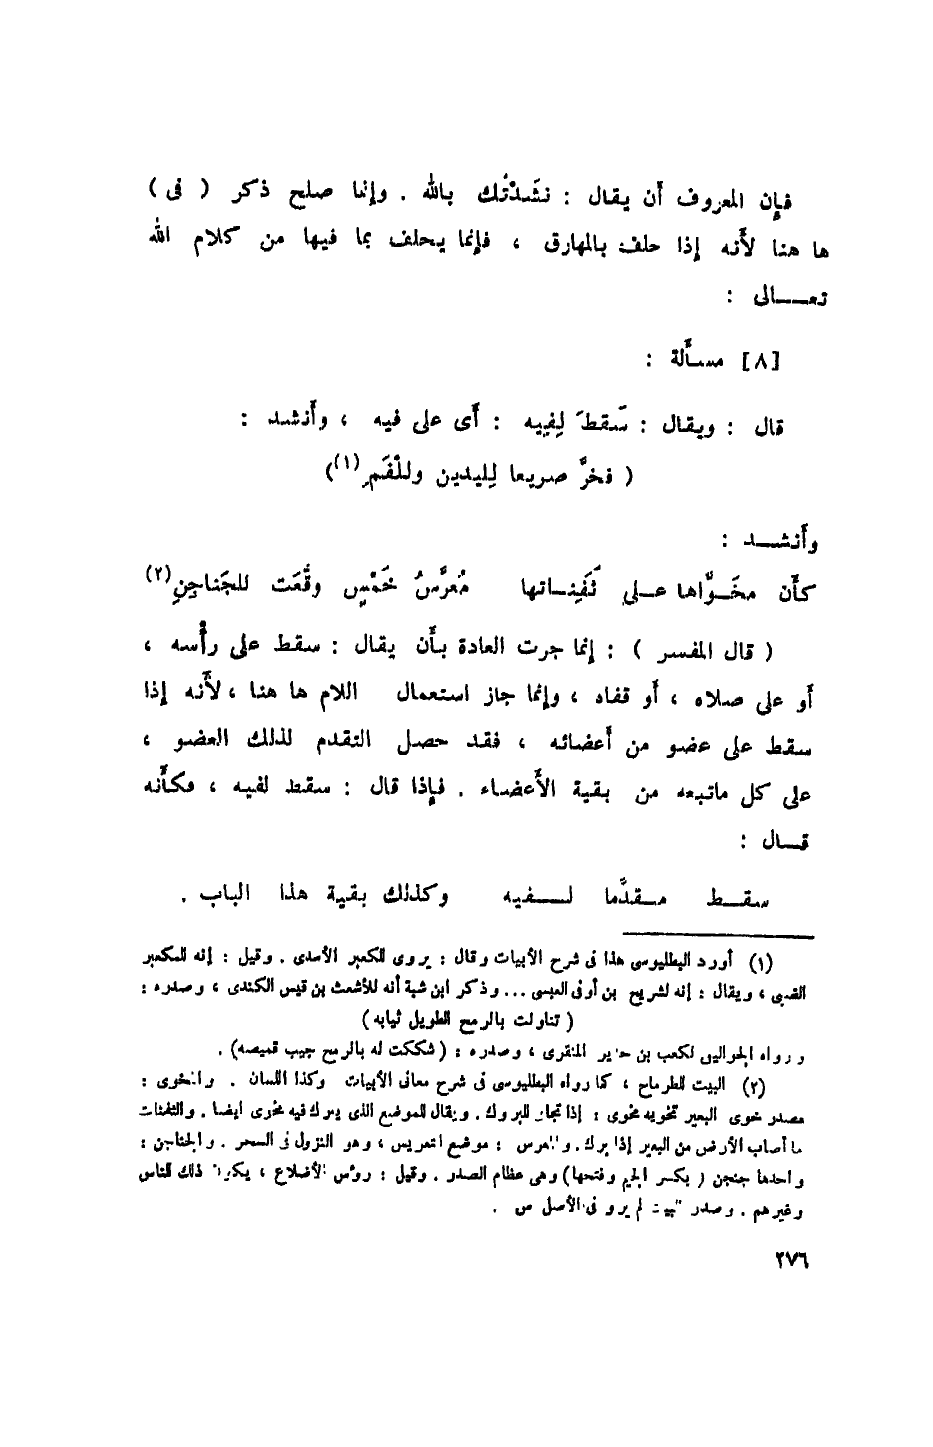 فإن المعروف أن يقال : نشَدْتُك بالله . وإنما صلح ذكر ( فى )
ها هنا لأَنه إذا حلف بالمهارق ، فإنما يحلف بما فيها من كلام الله
تعــالى :
[٨] مسأَلة :
قال : ويقال : سَقطَ لِفِيه : أَى على فيه ، وأَنشد :
( فخرَّ صريعا لِليدين وللْفَمِ(١))
وأَنشــد :
كأَن مخَــوَّاها عــلى ثَفِنــاتها مُعرَّسُ خَمْسٍ وقَّعَت للجَناجِنِ(٢)
( قال المفسر ) : إنما جرت العادة بأَن يقال : سقط على رأْسه ،
أو على صلاه ، أو قفاه ، وإنما جاز استعمال اللام ها هنا ، لأَنه إذا
سقط على عضو من أَعضائه ، فقد حصل التقدم لذلك العضو ،
على كل ماتبعه من بقية الأَعضاء . فإذا قال : سقط لفيه ، فكأَنه
قــال :
سقــط مــقدَّما لــفيه وكذلك بقية هذا الباب .
(١) أورد البطليوسى هذا فى شرح الأبيات وقال : يروى للكعبر الأسدى . وقيل : إنه للمكعبر
الضبى ، ويقال : إنه لشريح بن أوفى العبسى ... وذكر ابن شبة أنه للأشعث بن قيس الكندى ، وصدره :
( تناولت بالرمح الطويل ثيابه )
ورواه الجواليقى لكعب بن حدير المنقرى ، وصدره : (شككت له بالرمح جيب قميصه) .
(٢) البيت للطرماح ، كما رواه البطليوسى فى شرح معانى الأبيات وكذا اللسان . والمخوى :
مصدر خوى البعير تخويه مخوى : إذا تجافى للبروك . ويقال للموضع الذى يبرك فيه مخوى ايضا . والثفنات
ما أصاب الأرض من البعير إذا برك . والمعرس : موضع التعريس ، وهو النزول فى السحر . والجناجن :
واحدها جنجن ( بكسر الجيم وفتحها) وهى عظام الصدر . وقيل : رؤس الأضلاع ، يكون ذلك للناس
وغيرهم . وصدر البيت لم يرو فى الأصل س .
٢٧٦